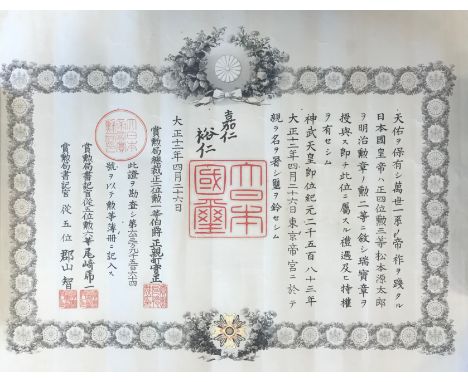 天佑ヲ保有シ萬世一系ノ帝祚ヲ踐タル
日本國皇帝ハ正四位勲三等松本源太郎
ヲ明治勲章ノ勲二等ニ敍シ瑞寶章ヲ
授與ス即チ此位ニ屬スル禮遇及ヒ特權
ヲ有セシム
神武天皇即位紀元二千五百八十三年
大正十二年四月二十六日東京帝宮ニ於テ
親ラ名ヲ署シ璽ヲ鈐セシム
嘉仁
裕仁
大日本國璽
大正十二年四月二十六日
賞勲局総裁正三位勲一等伯爵正親町實正
此證ヲ勘査シ第六万九千五百六十四
號ヲ以テ勲等簿冊ニ記入ス
賞勲局書記官從五位勲六等尾崎
賞勲局書記官從五位郡山智